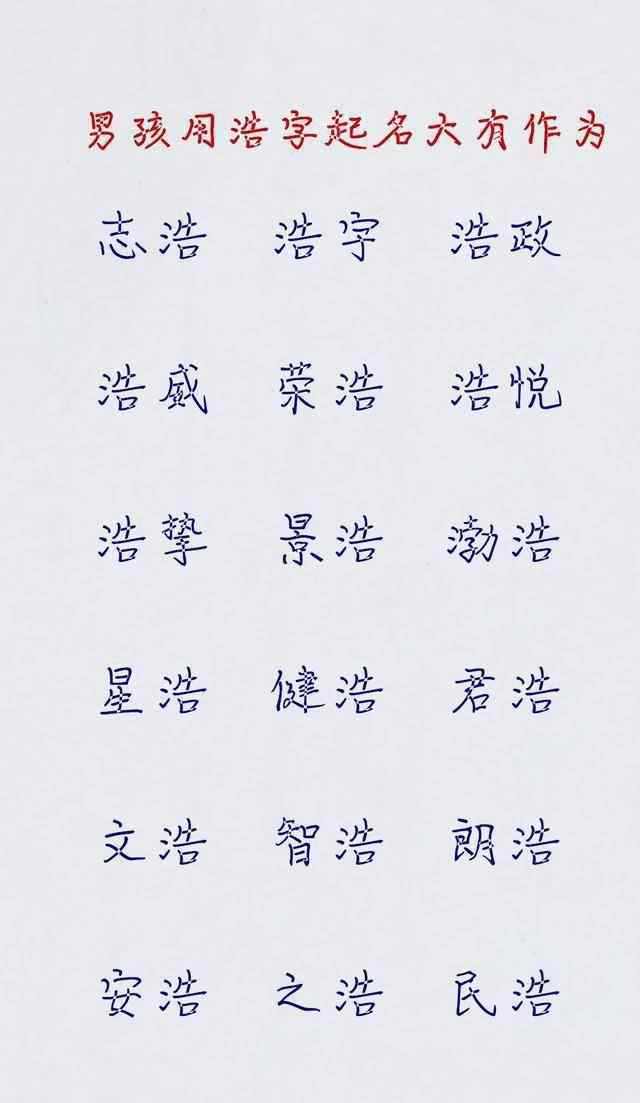 男孩用浩字起名大有作为
志浩 浩字 浩政
浩威 荣浩 浩悦
浩挚 景浩 渤浩
星浩 健浩 君浩
文浩 智浩 朗浩
安浩 之浩 民浩